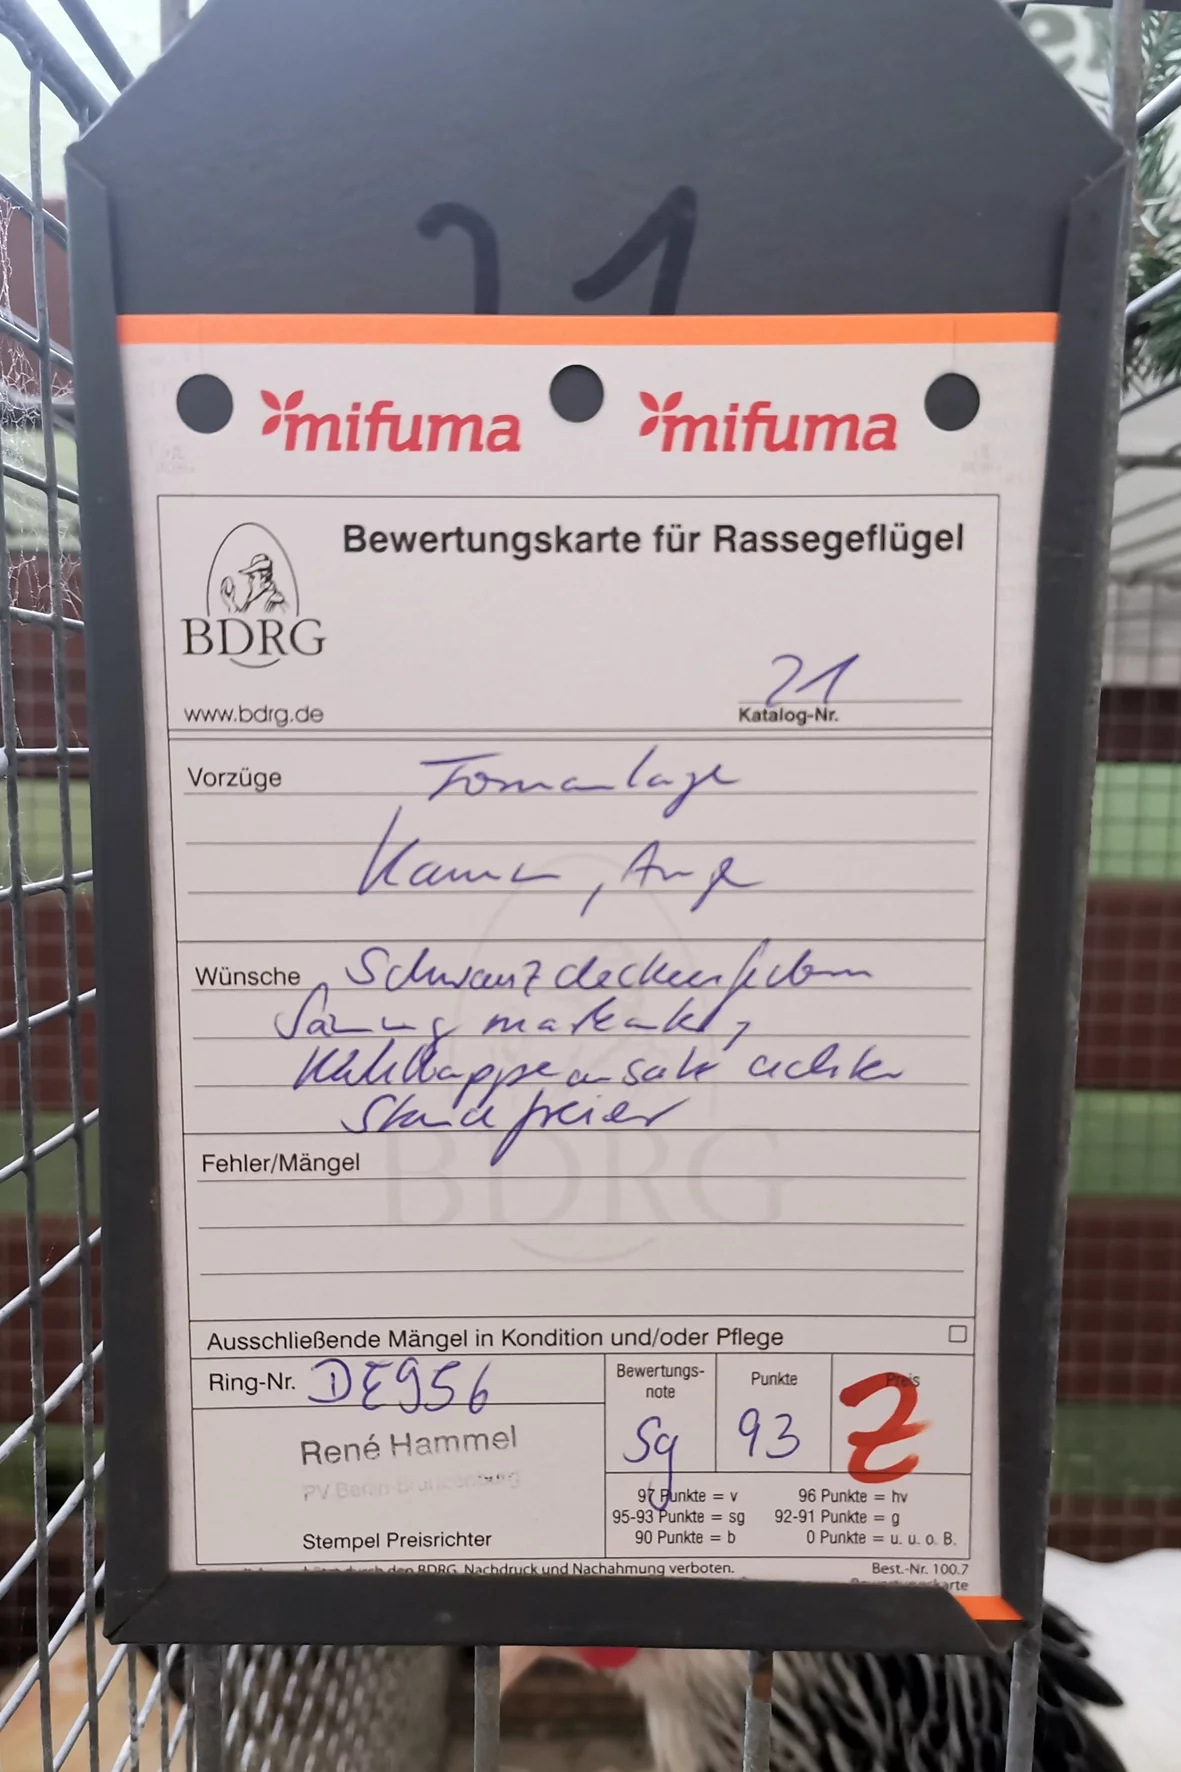 21
mifuma mifuma
Bewertungskarte für Rassegeflügel
BDRG
21
www.bdrg.de
Katalog-Nr.
Vorzüge Formanlage
Kamm, Auge
Wünsche Schwanzdeckenfedern
Säumung markanter,
Kehllappenansatz
Stand freier
Fehler/Mängel
BDRG
Ausschließende Mängel in Kondition und/oder Pflege
Ring-Nr. DE956
Bewertungs-
note
Sg
Punkte
93
Preis
Z
René Hammel
PV Berlin-Brandenburg
Stempel Preisrichter
97 Punkte = v 96 Punkte = hv
95-93 Punkte = sg 92-91 Punkte = g
90 Punkte = b 0 Punkte = u. u. o. B.
durch den BDRG. Nachdruck und Nachahmung verboten. Best.-Nr. 100.7
Bewertungskarte